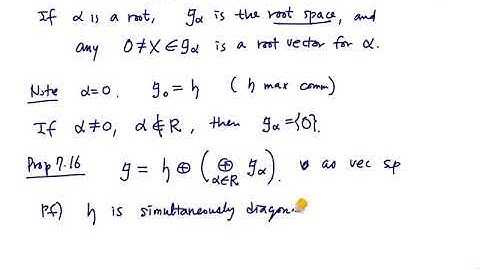 If α is a root, 𝔤_α is the root space, and
any 0≠X∈𝔤_α is a root vector for α.
Note α=0. 𝔤_0 = 𝔥 (𝔥 max comm)
If α≠0, α∉R, then 𝔤_α={0}.
Prop 7.16 𝔤 = 𝔥 ⊕ (⊕_{α∈R} 𝔤_α). as vec sp
Pf) 𝔥 is simultaneously diagon